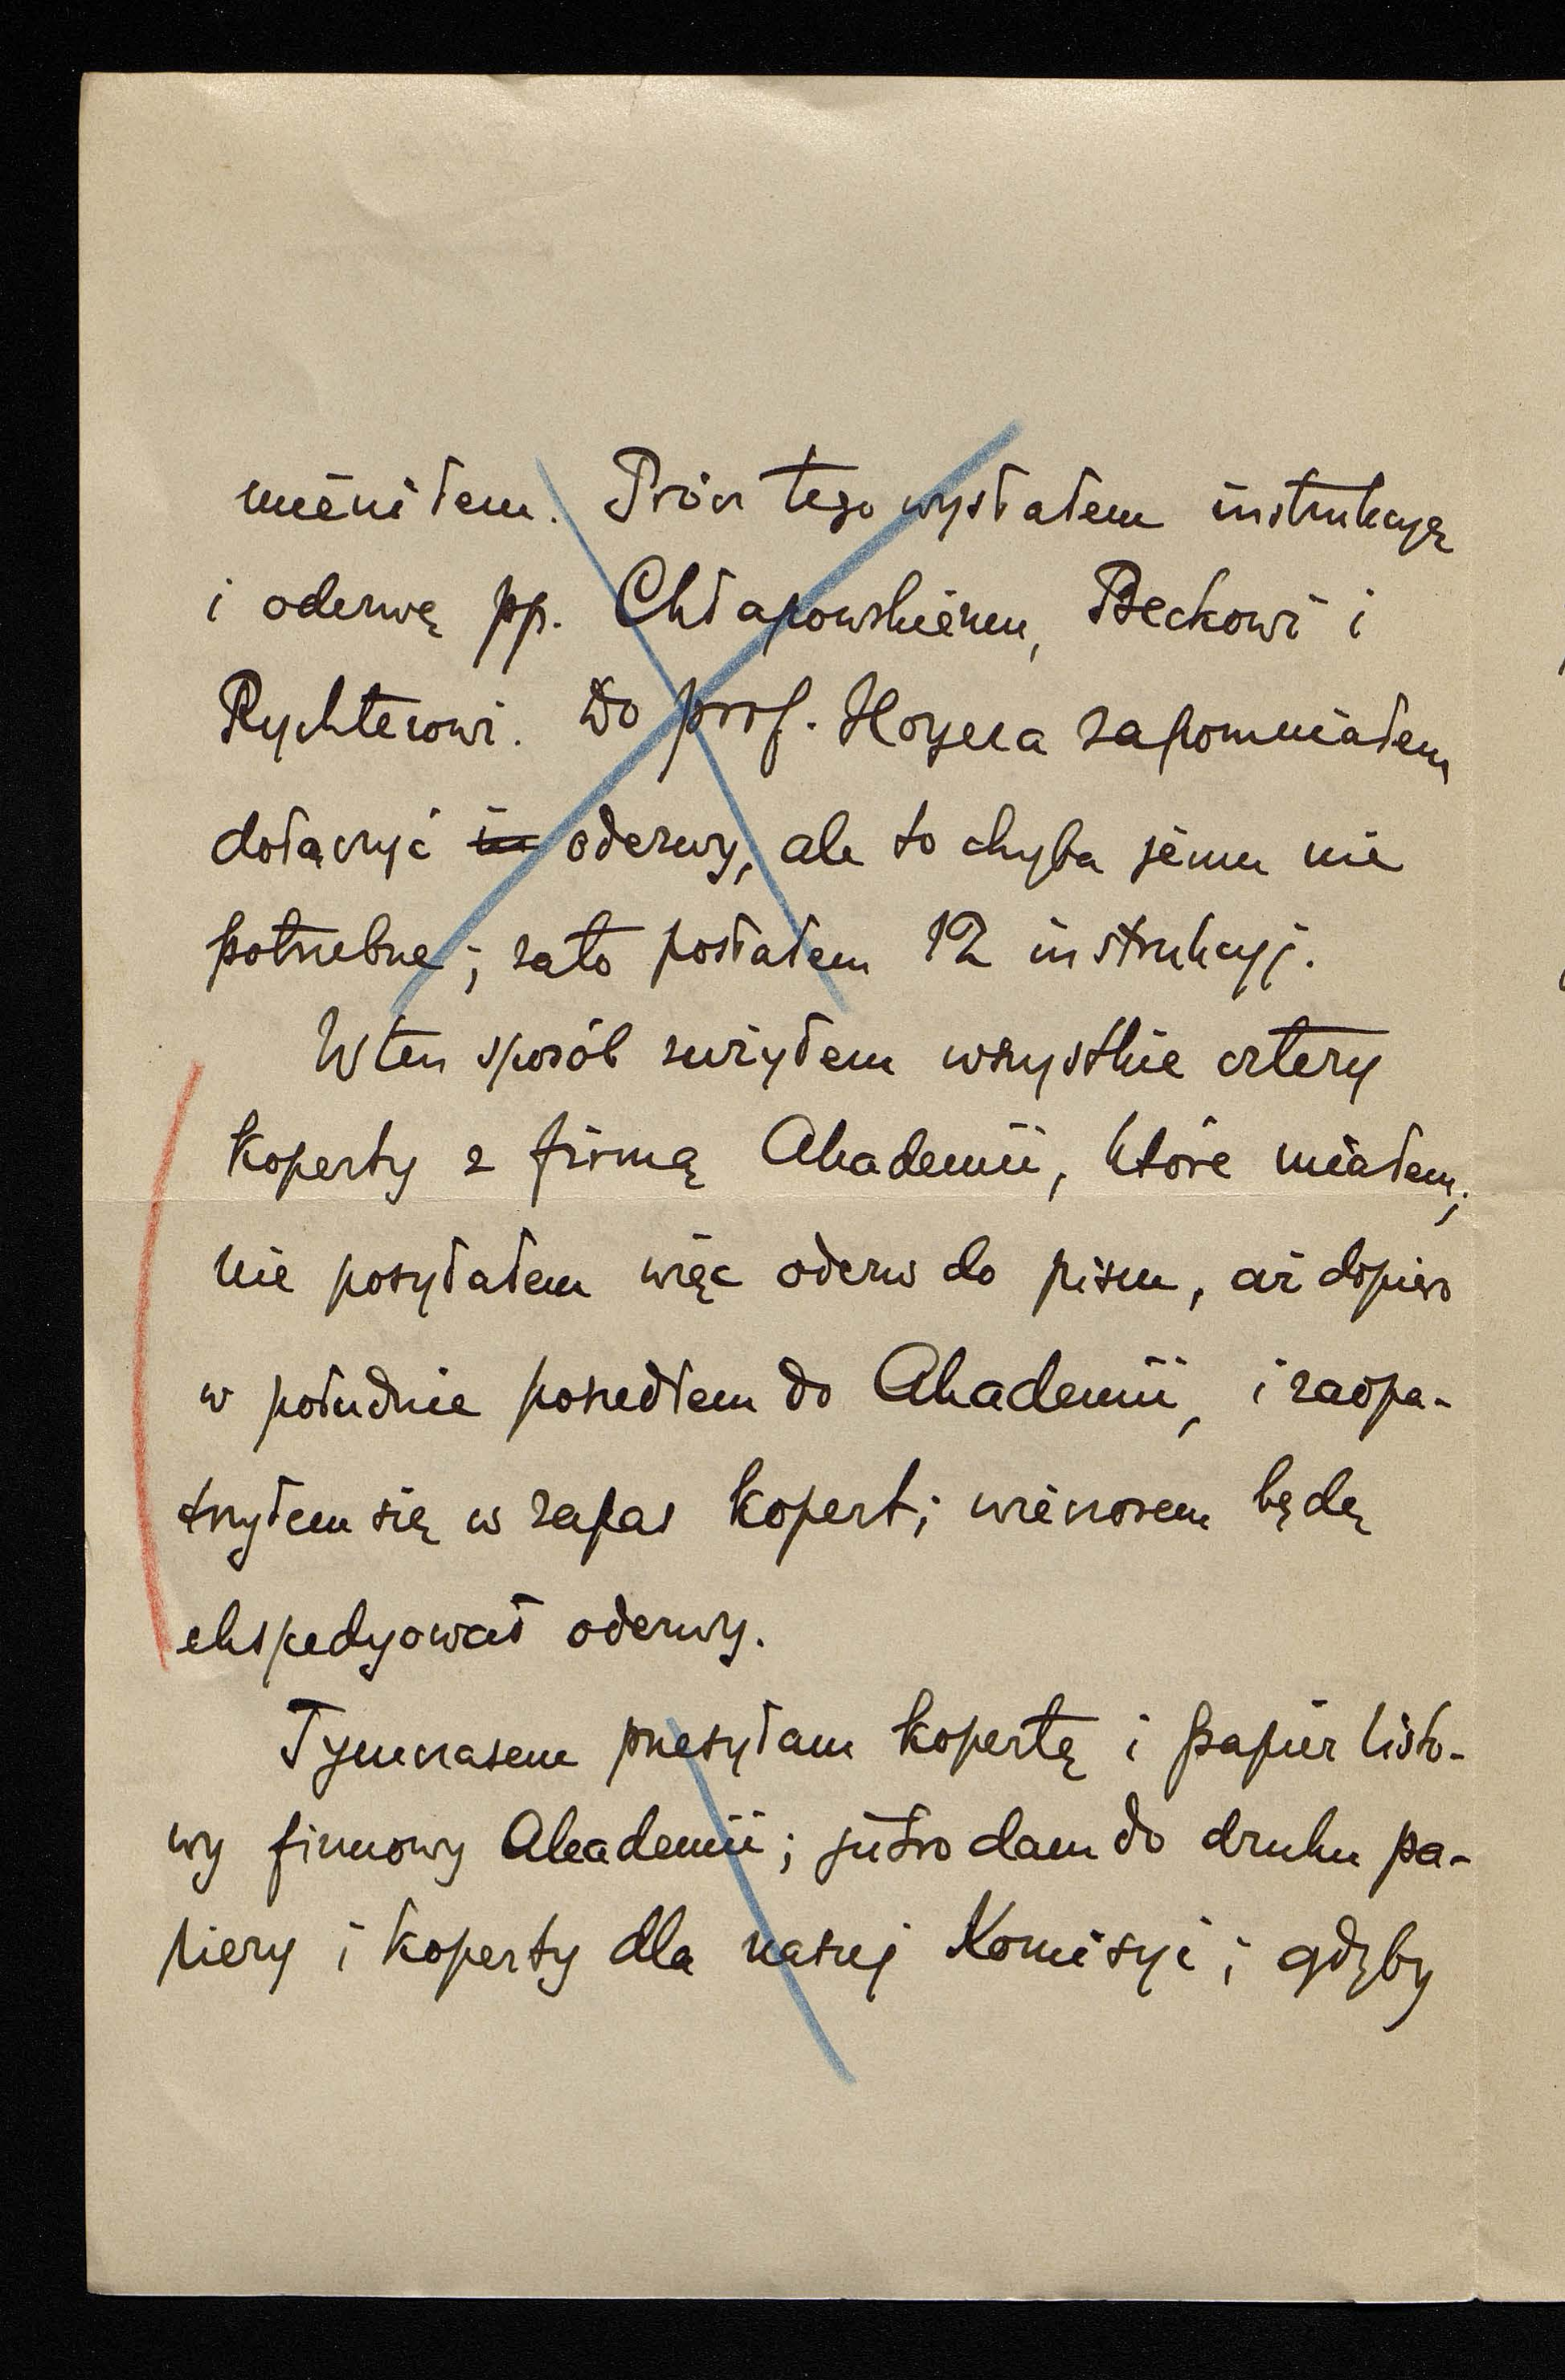 mieniłem. Prócz tego wysłałem instrukcyę
i odezwę pp. Chłapowskiemu, Beckowi i
Rychterowi. Do prof. Hoyera zapomniałem
dołączyć odezwy, ale to chyba jemu nie
potrzebne; zato posłałem 12 instrukcyj.
W ten sposób zużyłem wszystkie cztery
koperty z firmą Akademii, które miałem;
nie posyłałem więc odezw do pism, aż dopiero
w południe poszedłem do Akademii, i zaopa-
trzyłem się w zapas kopert; wieczorem będę
ekspedyował odezwy.
Tymczasem przesyłam kopertę i papier listo-
wy firmowy Akademii; jutro dam do druku pa-
piery i koperty dla naszej Komisyi; gdyby